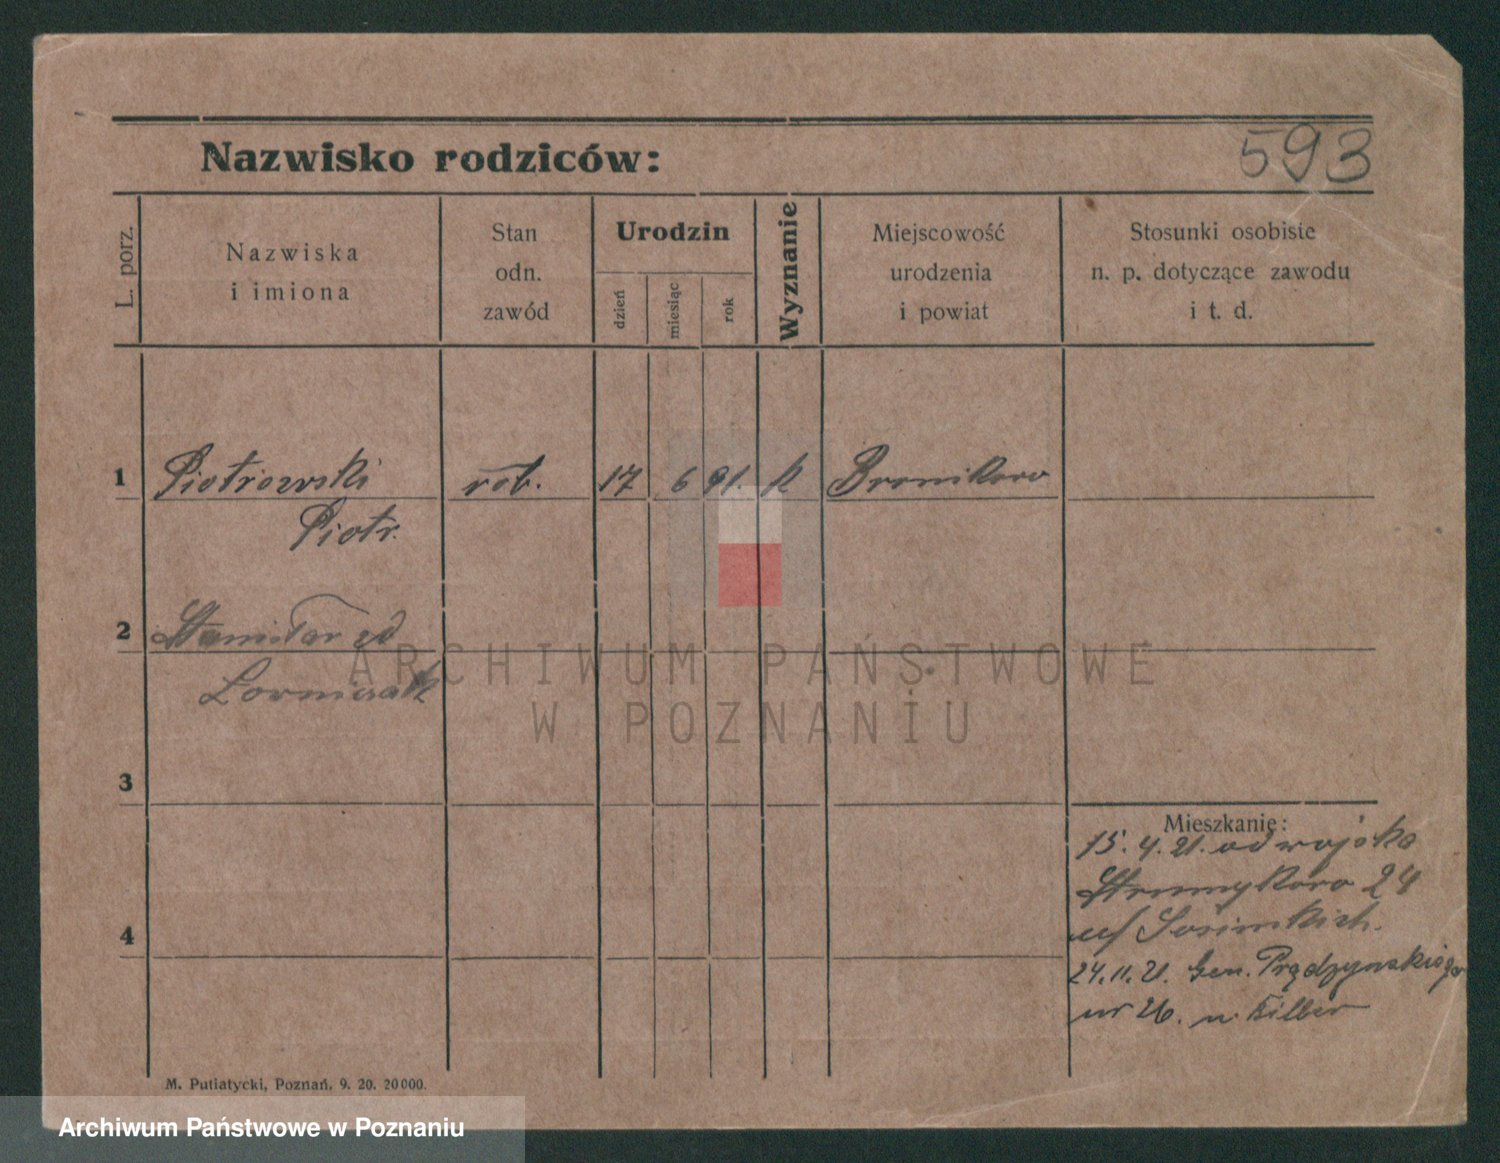 Nazwisko rodziców:
593
L. porz.
Nazwiska
i imiona
Stan
odn.
zawód
Urodzin
dzień
miesiąc
rok
Wyznanie
Miejscowość
urodzenia
i powiat
Stosunki osobiste
n. p. dotyczące zawodu
i t. d.
1 Piotrowski rob. 17 6 91. k Bronikowo
Piotr.
2
3
4
Mieszkanie:
15.4.21. od wojska
24
24.11.21. Gen. Prądzyńskiego
nr 26. u
M. Putiatycki, Poznań, 9. 20. 20000.
ARCHIWUM PAŃSTWOWE
W POZNANIU
Archiwum Państwowe w Poznaniu